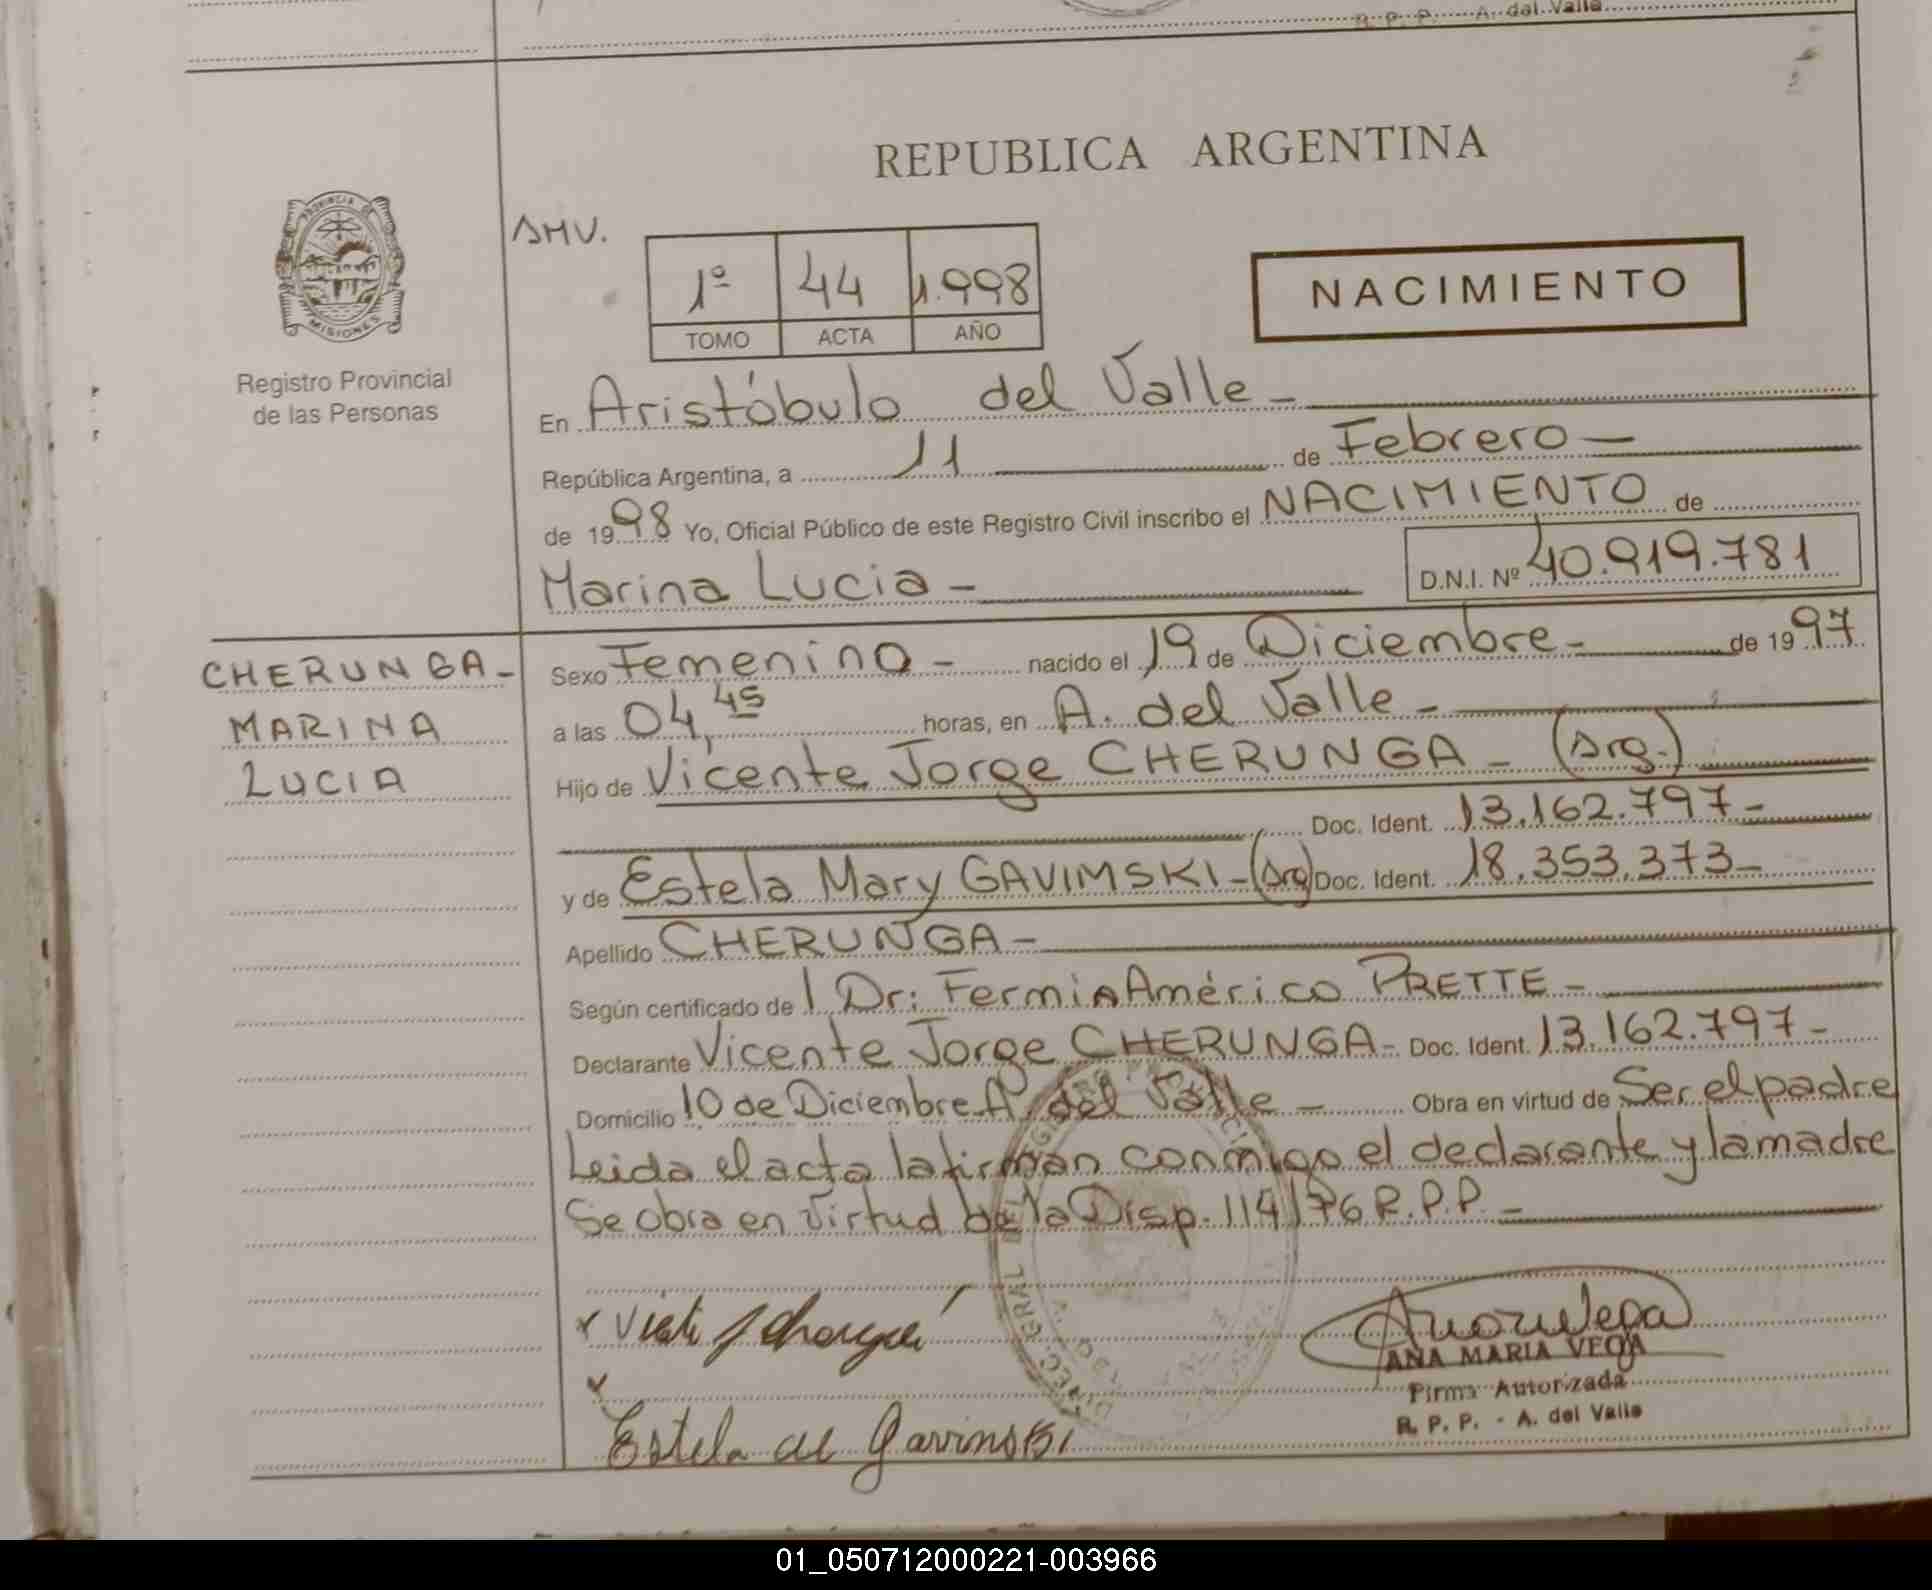 R. P. P. A. del Valle
REPUBLICA ARGENTINA
PROVINCIA DE
MISIONES
Registro Provincial
de las Personas
AMV.
1º 44 1.998
TOMO ACTA AÑO
NACIMIENTO
En Aristóbulo del Valle -
República Argentina, a 11 de Febrero -
de 1998 Yo, Oficial Público de este Registro Civil inscribo el NACIMIENTO de
Marina Lucia - D.N.I. Nº 40.919.781
CHERUNGA -
MARINA
LUCIA
Sexo Femenino - nacido el 19 de Diciembre - de 1997
a las 04,45 horas, en A. del Valle -
Hijo de Vicente Jorge CHERUNGA - (Arg.)
Doc. Ident. 13.162.797 -
y de Estela Mary GAVIMSKI - (Arg) Doc. Ident. 18.353.373 -
Apellido CHERUNGA -
Según certificado de 1 Dr: Fermin Américo PRETTE -
Declarante Vicente Jorge CHERUNGA - Doc. Ident. 13.162.797 -
Domicilio 10 de Diciembre A. del Valle - Obra en virtud de Ser el padre
Leida el acta la firman conmigo el declarante y la madre
Se obra en virtud de la Disp. 114/76 R.P.P. -
Estela Gavinski
ANA MARIA VEGA
Firma Autorizada
R. P. P. - A. del Valle
01_050712000221-003966